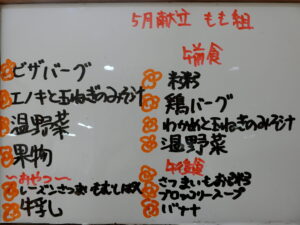 5月献立 もも組
ピザバーグ
エノキと玉ねぎのみそ汁
温野菜
果物
〜おやつ〜
レーズンさつまいもむしぱん
牛乳
午前食
お粥
鶏バーグ
わかめと玉ねぎのみそ汁
温野菜
午後食
さつまいもお粥
ブロッコリースープ
バナナ